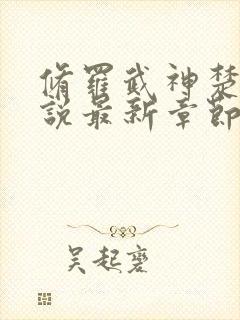 脩羅武神楚
說最新章節
吴起襃